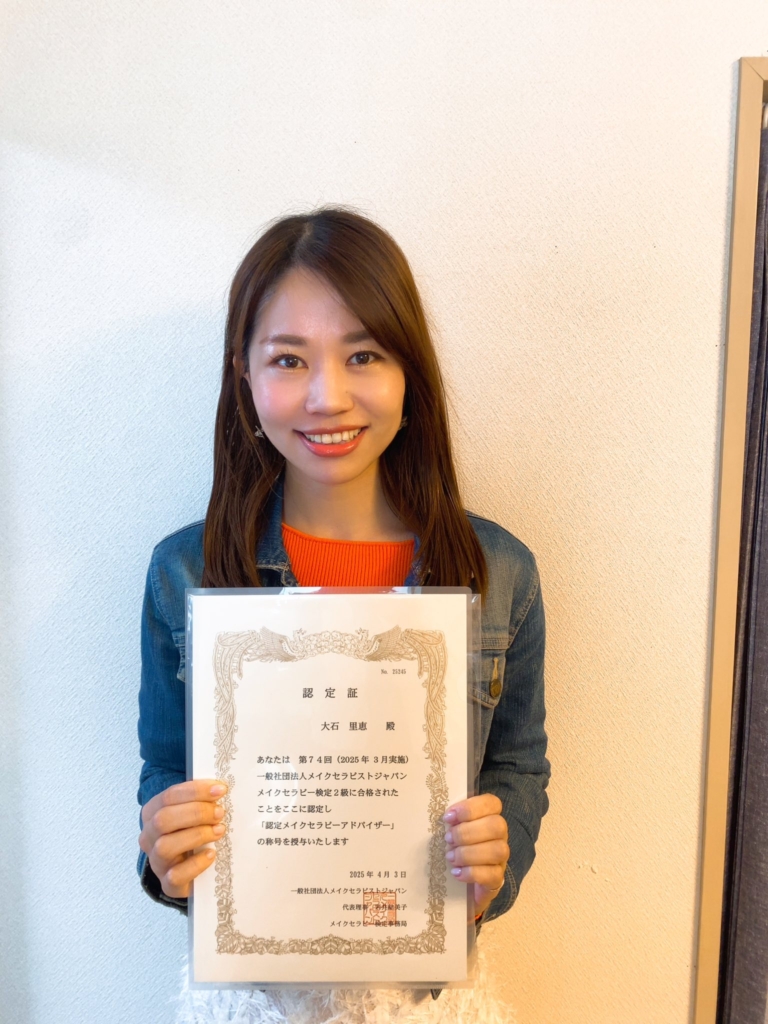 No. 25245
認定証
大石 里恵 殿
あなたは 第74回（2025年 3月実施）
一般社団法人メイクセラピストジャパン
メイクセラピー検定2級に合格された
ことをここに認定し
「認定メイクセラピーアドバイザー」
の称号を授与いたします
2025年 4月 3日
一般社団法人メイクセラピストジャパン
代表理事
メイクセラピー検定事務局